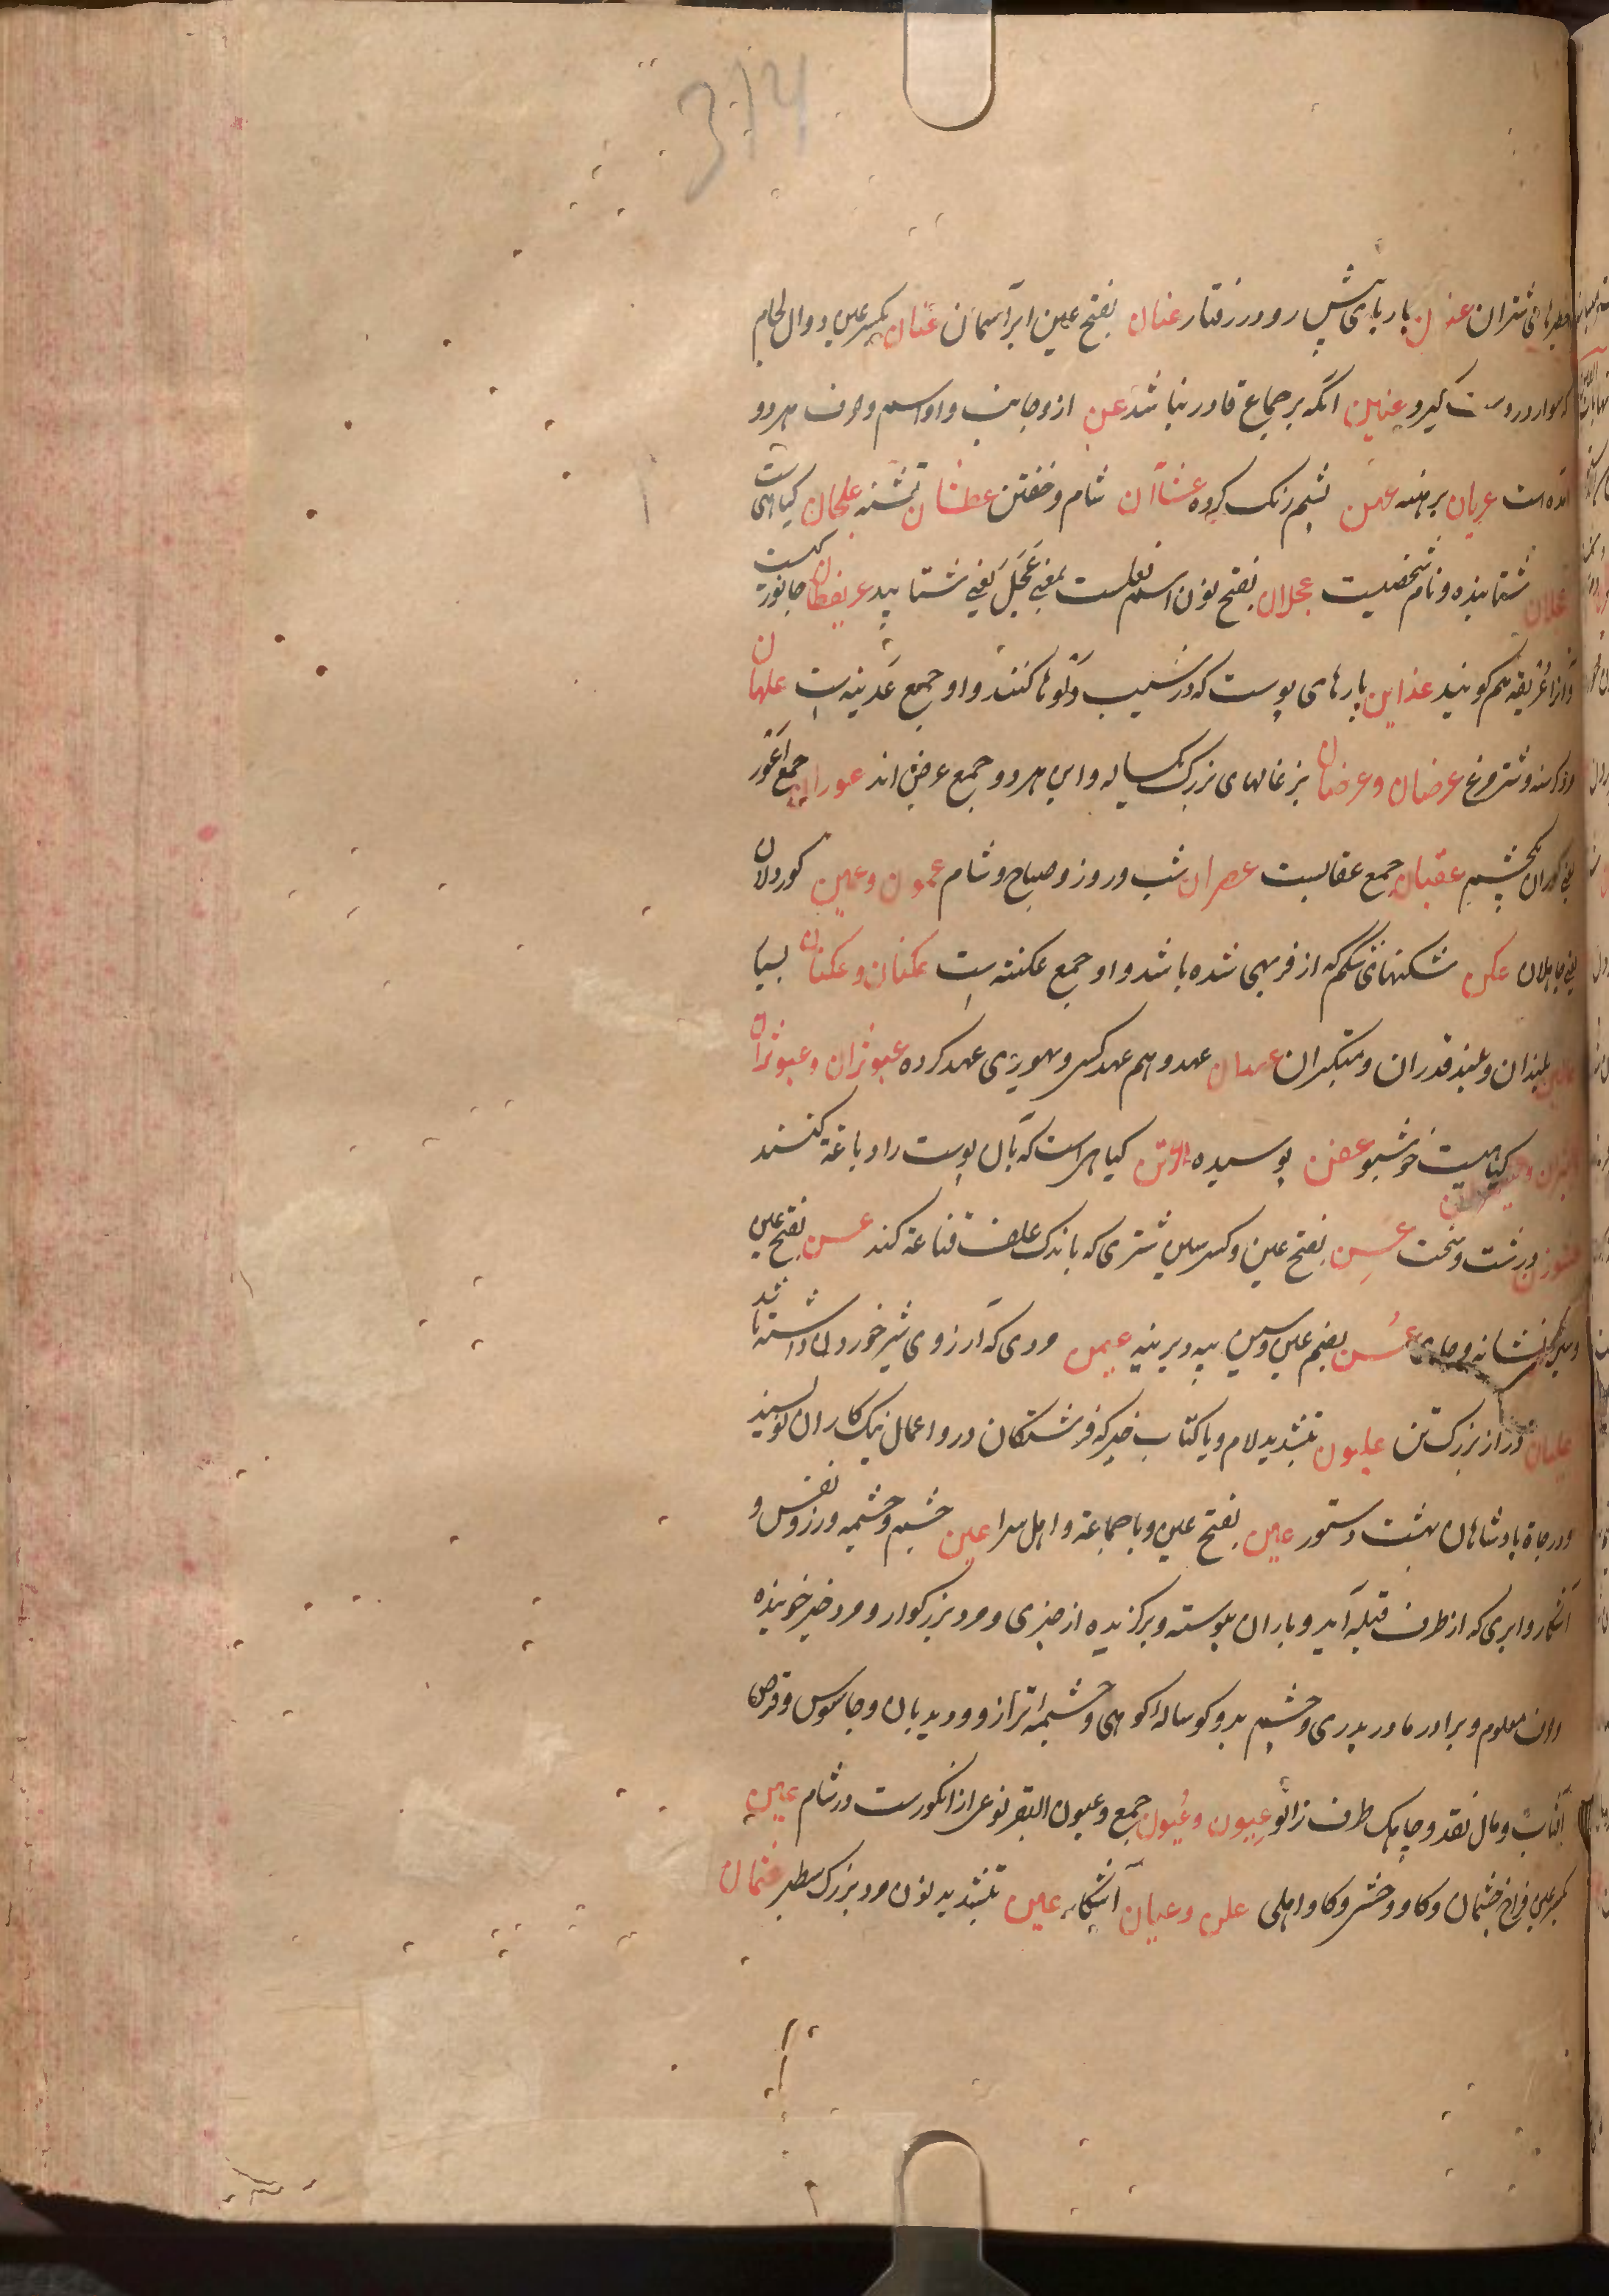 314
شتران عنون باربای پیش رو در رفتار عنان بفتح عین ابر آسمان عنان بکسر عین دوال لجام
که سوار در دست گیرد عنین آنکه بر جماع قادر نباشد عن از و جانب و او اسم و حرف هر دو
آمده است عریان برهنه عهن پشم رنگ کرده عشاآن شام و خفتن عطشان تشنه علجان گیاهی ست
عجلان شتابنده و نام شخصیست عجلان بفتح نون اسم فعلست بمعنی عجل یعنی شتابید عریقطان جانور
و آنرا عریقه هم گویند عذاین پارهای پوست که در شیب دلوها کنند و او جمع عدینه است علهان
و شترمرغ عرضان و عرضان بزغالهای بزرگ یکساله و این هر دو جمع عرض اند عوران جمع اعور
یعنی کوران یکچشم عقبان جمع عقابست عصران شب و روز و صباح و شام عمون و عمین کوردلان
یعنی جاهلان عکن شکنهای شکم که از فربهی شده باشد و او جمع عکنه است عکنان و عکنان بسیار
بلندان و بلند قدران و متکبران عهدان عهد و هم عهد کسی و هم چیزی عهد کرده عبوثران و عبوثران
گیاهیست خوشبو عفن پوسیده گیاهی است که بآن پوست را دباغة کنند
درشت و سخت عسن بفتح عین و کسر سین شتری که باندک علف قناعة کند عسن بفتح عین
نشانه و جای عسن بضم عین و سین پیه دیرینه عیمن مردی که آرزوی شیر خوردن داشته باشد
علیان دراز بزرگ تن علیون بتشدید لام و یا کتاب خیر که فرشتگان درو اعمال نیک کاران نویسند
و درجاة پادشاهان بهشت و ستور عین بفتح عین و با جماعة و اهل سرا عین چشم و چشمه و زر و نفس و
آشکار و ابری که از طرف قبله آید و باران پیوسته و برگزیده از چیزی و مرد بزرگوار و مرد خبر
معلوم و برادر مادر پدری و چشم بد و کوساله کوهی و چشمه ترازو و دیدبان و جاسوس و قرص
آفتاب و مال نقد و چاهک طرف زانو عیون و عیون جمع و عیون البقر نوعی از انگورست در شام عین
بکسر عین فراخ چشمان و گاو وحشی و گاو اهلی علن و عیان آشکار عین بتشدید نون مرد بزرگ سطبر